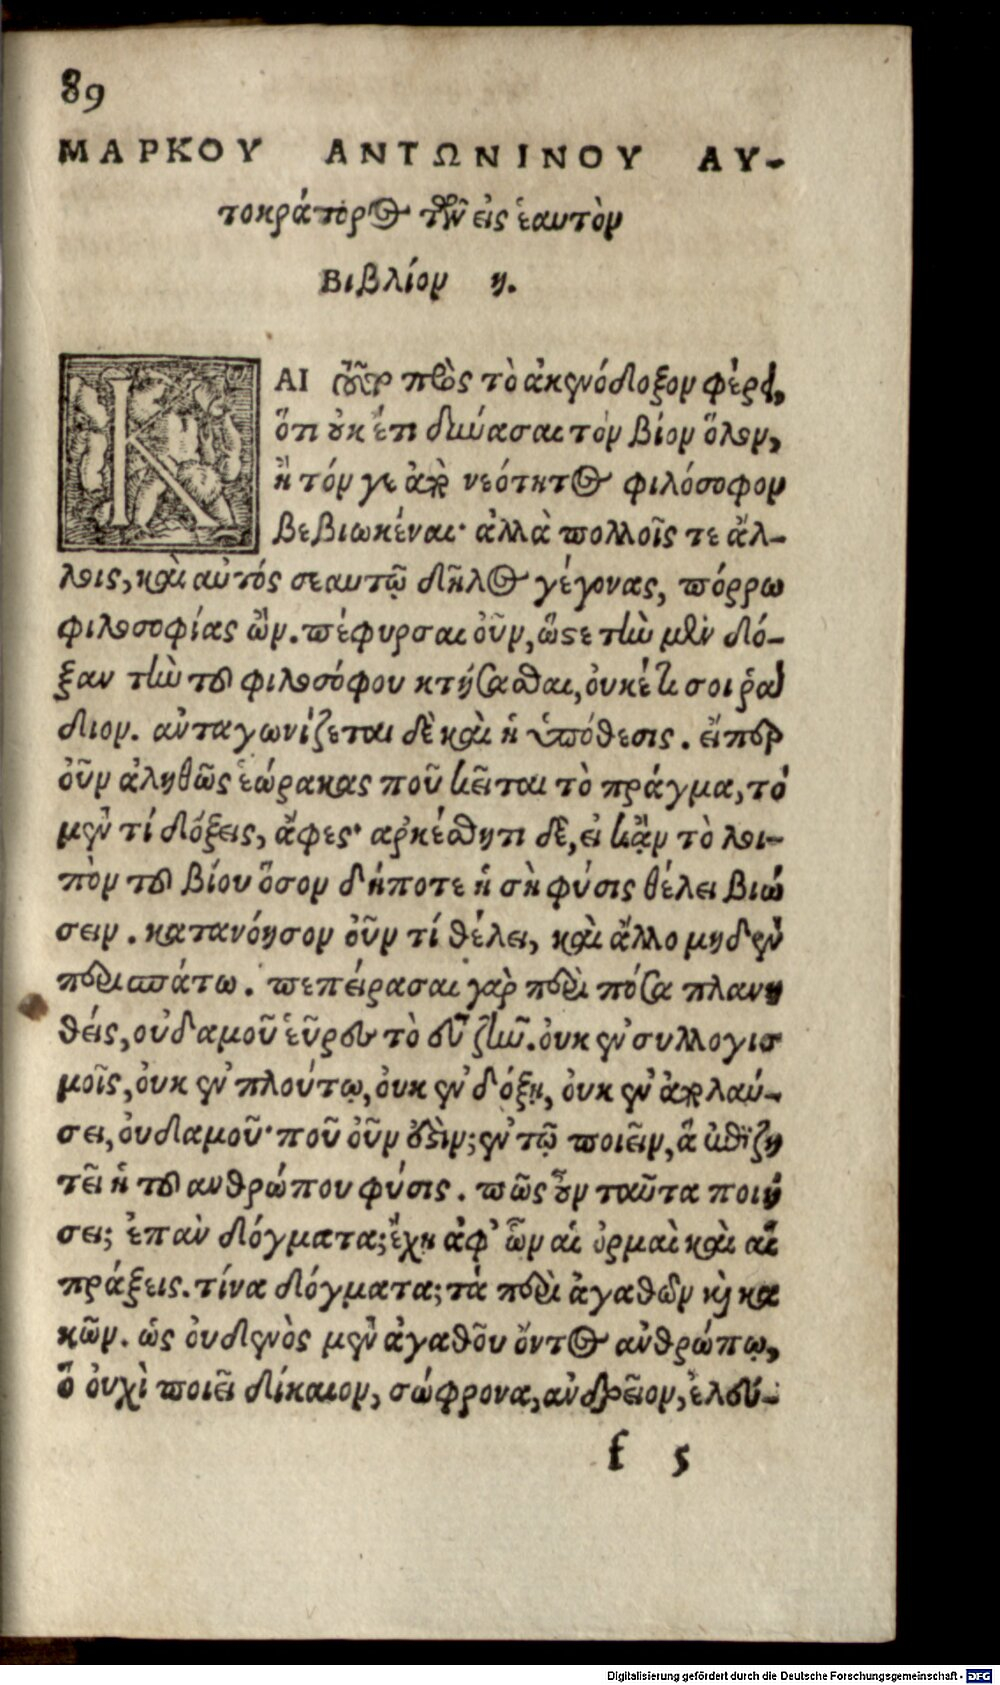 89
ΜΑΡΚΟΥ ΑΝΤΩΝΙΝΟΥ ΑΥ-
τοκράτορος τῶν εἰς ἑαυτὸν
Βιβλίον η.
ΚΑΙ τοῦτο πρὸς τὸ ἀκενόδοξον φέρει,
ὅτι οὐκ ἔτι δύνασαι τὸν βίον ὅλον,
ἢ τόν γε ἀπὸ νεότητος φιλόσοφον
βεβιωκέναι· ἀλλὰ πολλοῖς τε ἄλ-
λοις, καὶ αὐτός σεαυτῷ δῆλος γέγονας, πόρρω
φιλοσοφίας ὤν. πέφυρσαι οὖν, ὥστε τὴν μὲν δό-
ξαν τὴν τοῦ φιλοσόφου κτήσασθαι, οὐκέτι σοι ῥᾴ
διον. ἀνταγωνίζεται δὲ καὶ ἡ ὑπόθεσις. εἴπερ
οὖν ἀληθῶς ἑώρακας ποῦ κεῖται τὸ πράγμα, τό
μὲν τί δόξεις, ἄφες· ἀρκέσθητι δὲ, εἰ κᾂν τὸ λοι-
πὸν τοῦ βίου ὅσον δήποτε ἡ σὴ φύσις θέλει βιώ
σειν. κατανόησον οὖν τί θέλει, καὶ ἄλλο μηδὲν
περισπάτω. πεπείρασαι γὰρ περὶ πόσα πλανη
θείς, οὐδαμοῦ εὗρες τὸ εὖ ζῆν. οὐκ ἐν συλλογισ
μοῖς, οὐκ ἐν πλούτῳ, οὐκ ἐν δόξῃ, οὐκ ἐν ἀπολαύ-
σει, οὐδαμοῦ· ποῦ οὖν ἐστιν; ἐν τῷ ποιεῖν, ἃ ἐπιζη
τεῖ ἡ τοῦ ἀνθρώπου φύσις. πῶς οὖν ταῦτα ποιή
σει; ἐπαν δόγματα; ἔχῃ ἀφ' ὧν αἱ ὁρμαὶ καὶ αἱ
πράξεις. τίνα δόγματα; τὰ περὶ ἀγαθῶν καὶ κα
κῶν. ὡς οὐδενὸς μὲν ἀγαθοῦ ὄντος ἀνθρώπῳ,
ὃ οὐχὶ ποιεῖ δίκαιον, σώφρονα, ἀνδρεῖον, ἐλευ-
f 5
Digitalisierung gefördert durch die Deutsche Forschungsgemeinschaft - DFG